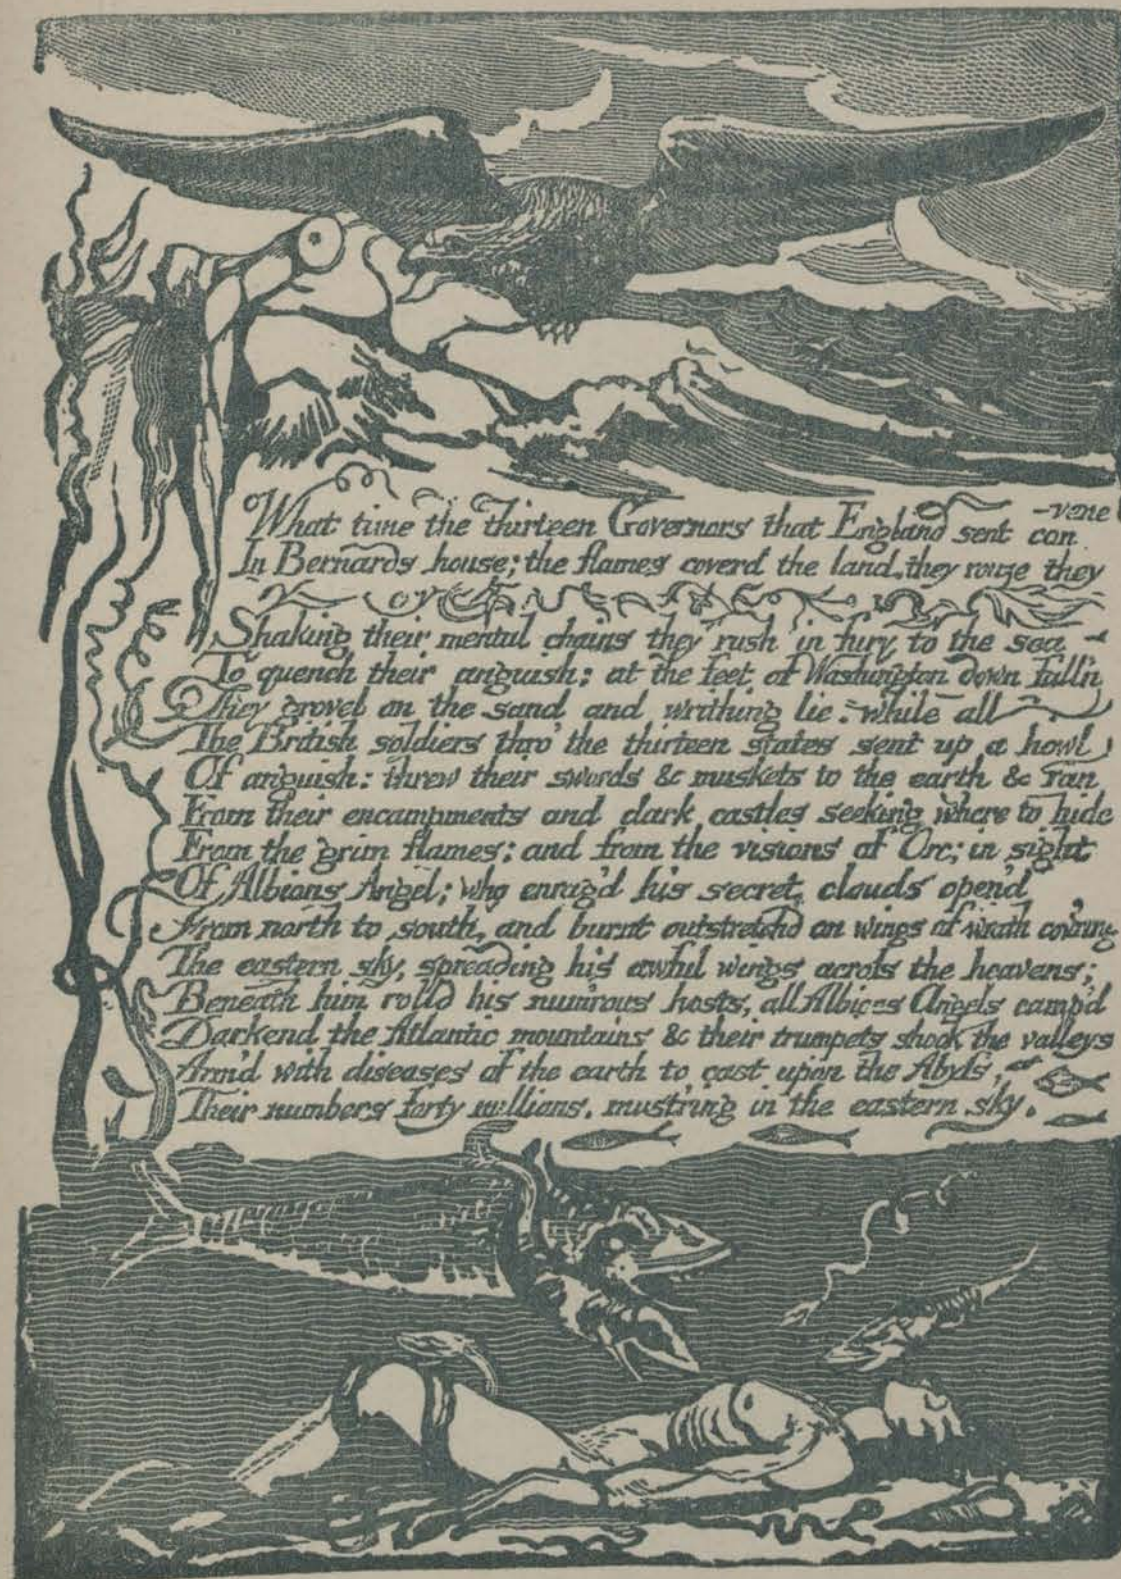 What time the thirteen Governors that England sent con
-vene
In Bernards house; the flames coverd the land, they rouze they
Shaking their mental chains they rush in fury to the sea
To quench their anguish; at the feet of Washington down fall'n
They grovel on the sand and writhing lie. while all
The British soldiers thro' the thirteen states sent up a howl
Of anguish: threw their swords & muskets to the earth & ran
From their encampments and dark castles seeking where to hide
From the grim flames; and from the visions of Orc; in sight
Of Albions Angel; who enrag'd his secret clouds open'd
From north to south, and burnt outstretchd on wings of wrath cov'ring
The eastern sky, spreading his awful wings across the heavens;
Beneath him rolld his num'rous hosts, all Albions Angels camp'd
Darkend the Atlantic mountains & their trumpets shook the valleys
Arm'd with diseases of the earth to cast upon the Abyss,
Their numbers forty millions, must'ring in the eastern sky.